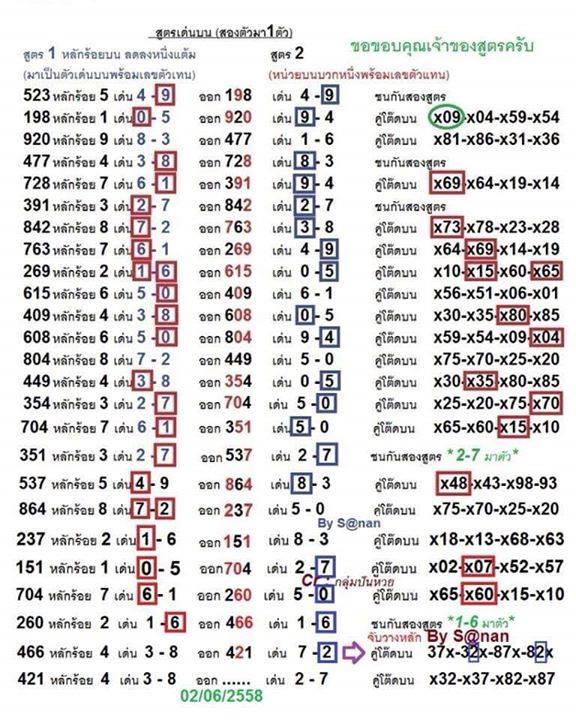 สูตรเด่นบน (สองตัวมา1ตัว)
สูตร 1 หลักร้อยบน ลดลงหนึ่งแต้ม สูตร 2 ขอขอบคุณเจ้าของสูตรครับ
(มาเป็นตัวเด่นบนพร้อมเลขตัวแทน) (หน่วยบนบวกหนึ่งพร้อมเลขตัวแทน)
523 หลักร้อย 5 เด่น 4 - 9 ออก 198 เด่น 4 - 9 ชนกันสองสูตร
198 หลักร้อย 1 เด่น 0 - 5 ออก 920 เด่น 9 - 4 คู่โต๊ดบน x09-x04-x59-x54
920 หลักร้อย 9 เด่น 8 - 3 ออก 477 เด่น 1 - 6 คู่โต๊ดบน x81-x86-x31-x36
477 หลักร้อย 4 เด่น 3 - 8 ออก 728 เด่น 8 - 3 ชนกันสองสูตร
728 หลักร้อย 7 เด่น 6 - 1 ออก 391 เด่น 9 - 4 คู่โต๊ดบน x69-x64-x19-x14
391 หลักร้อย 3 เด่น 2 - 7 ออก 842 เด่น 2 - 7 ชนกันสองสูตร
842 หลักร้อย 8 เด่น 7 - 2 ออก 763 เด่น 3 - 8 คู่โต๊ดบน x73-x78-x23-x28
763 หลักร้อย 7 เด่น 6 - 1 ออก 269 เด่น 4 - 9 คู่โต๊ดบน x64-x69-x14-x19
269 หลักร้อย 2 เด่น 1 - 6 ออก 615 เด่น 0 - 5 คู่โต๊ดบน x10-x15-x60-x65
615 หลักร้อย 6 เด่น 5 - 0 ออก 409 เด่น 6 - 1 คู่โต๊ดบน x56-x51-x06-x01
409 หลักร้อย 4 เด่น 3 - 8 ออก 608 เด่น 0 - 5 คู่โต๊ดบน x30-x35-x80-x85
608 หลักร้อย 6 เด่น 5 - 0 ออก 804 เด่น 9 - 4 คู่โต๊ดบน x59-x54-x09-x04
804 หลักร้อย 8 เด่น 7 - 2 ออก 449 เด่น 5 - 0 คู่โต๊ดบน x75-x70-x25-x20
449 หลักร้อย 4 เด่น 3 - 8 ออก 354 เด่น 0 - 5 คู่โต๊ดบน x30-x35-x80-x85
354 หลักร้อย 3 เด่น 2 - 7 ออก 704 เด่น 5 - 0 คู่โต๊ดบน x25-x20-x75-x70
704 หลักร้อย 7 เด่น 6 - 1 ออก 351 เด่น 5 - 0 คู่โต๊ดบน x65-x60-x15-x10
351 หลักร้อย 3 เด่น 2 - 7 ออก 537 เด่น 2 - 7 ชนกันสองสูตร *2-7 มาตัว*
537 หลักร้อย 5 เด่น 4 - 9 ออก 864 เด่น 8 - 3 คู่โต๊ดบน x48-x43-x98-93
864 หลักร้อย 8 เด่น 7 - 2 ออก 237 เด่น 5 - 0 คู่โต๊ดบน x75-x70-x25-x20
By S@nan
237 หลักร้อย 2 เด่น 1 - 6 ออก 151 เด่น 8 - 3 คู่โต๊ดบน x18-x13-x68-x63
151 หลักร้อย 1 เด่น 0 - 5 ออก 704 เด่น 2 - 7 คู่โต๊ดบน x02-x07-x52-x57
Cr : กลุ่มปันหวย
704 หลักร้อย 7 เด่น 6 - 1 ออก 260 เด่น 5 - 0 คู่โต๊ดบน x65-x60-x15-x10
260 หลักร้อย 2 เด่น 1 - 6 ออก 466 เด่น 1 - 6 ชนกันสองสูตร *1-6 มาตัว*
จับวางหลัก By S@nan
466 หลักร้อย 4 เด่น 3 - 8 ออก 421 เด่น 7 - 2 คู่โต๊ดบน 37x-32x-87x-82x
421 หลักร้อย 4 เด่น 3 - 8 ออก ...... เด่น 2 - 7 คู่โต๊ดบน x32-x37-x82-x87
02/06/2558